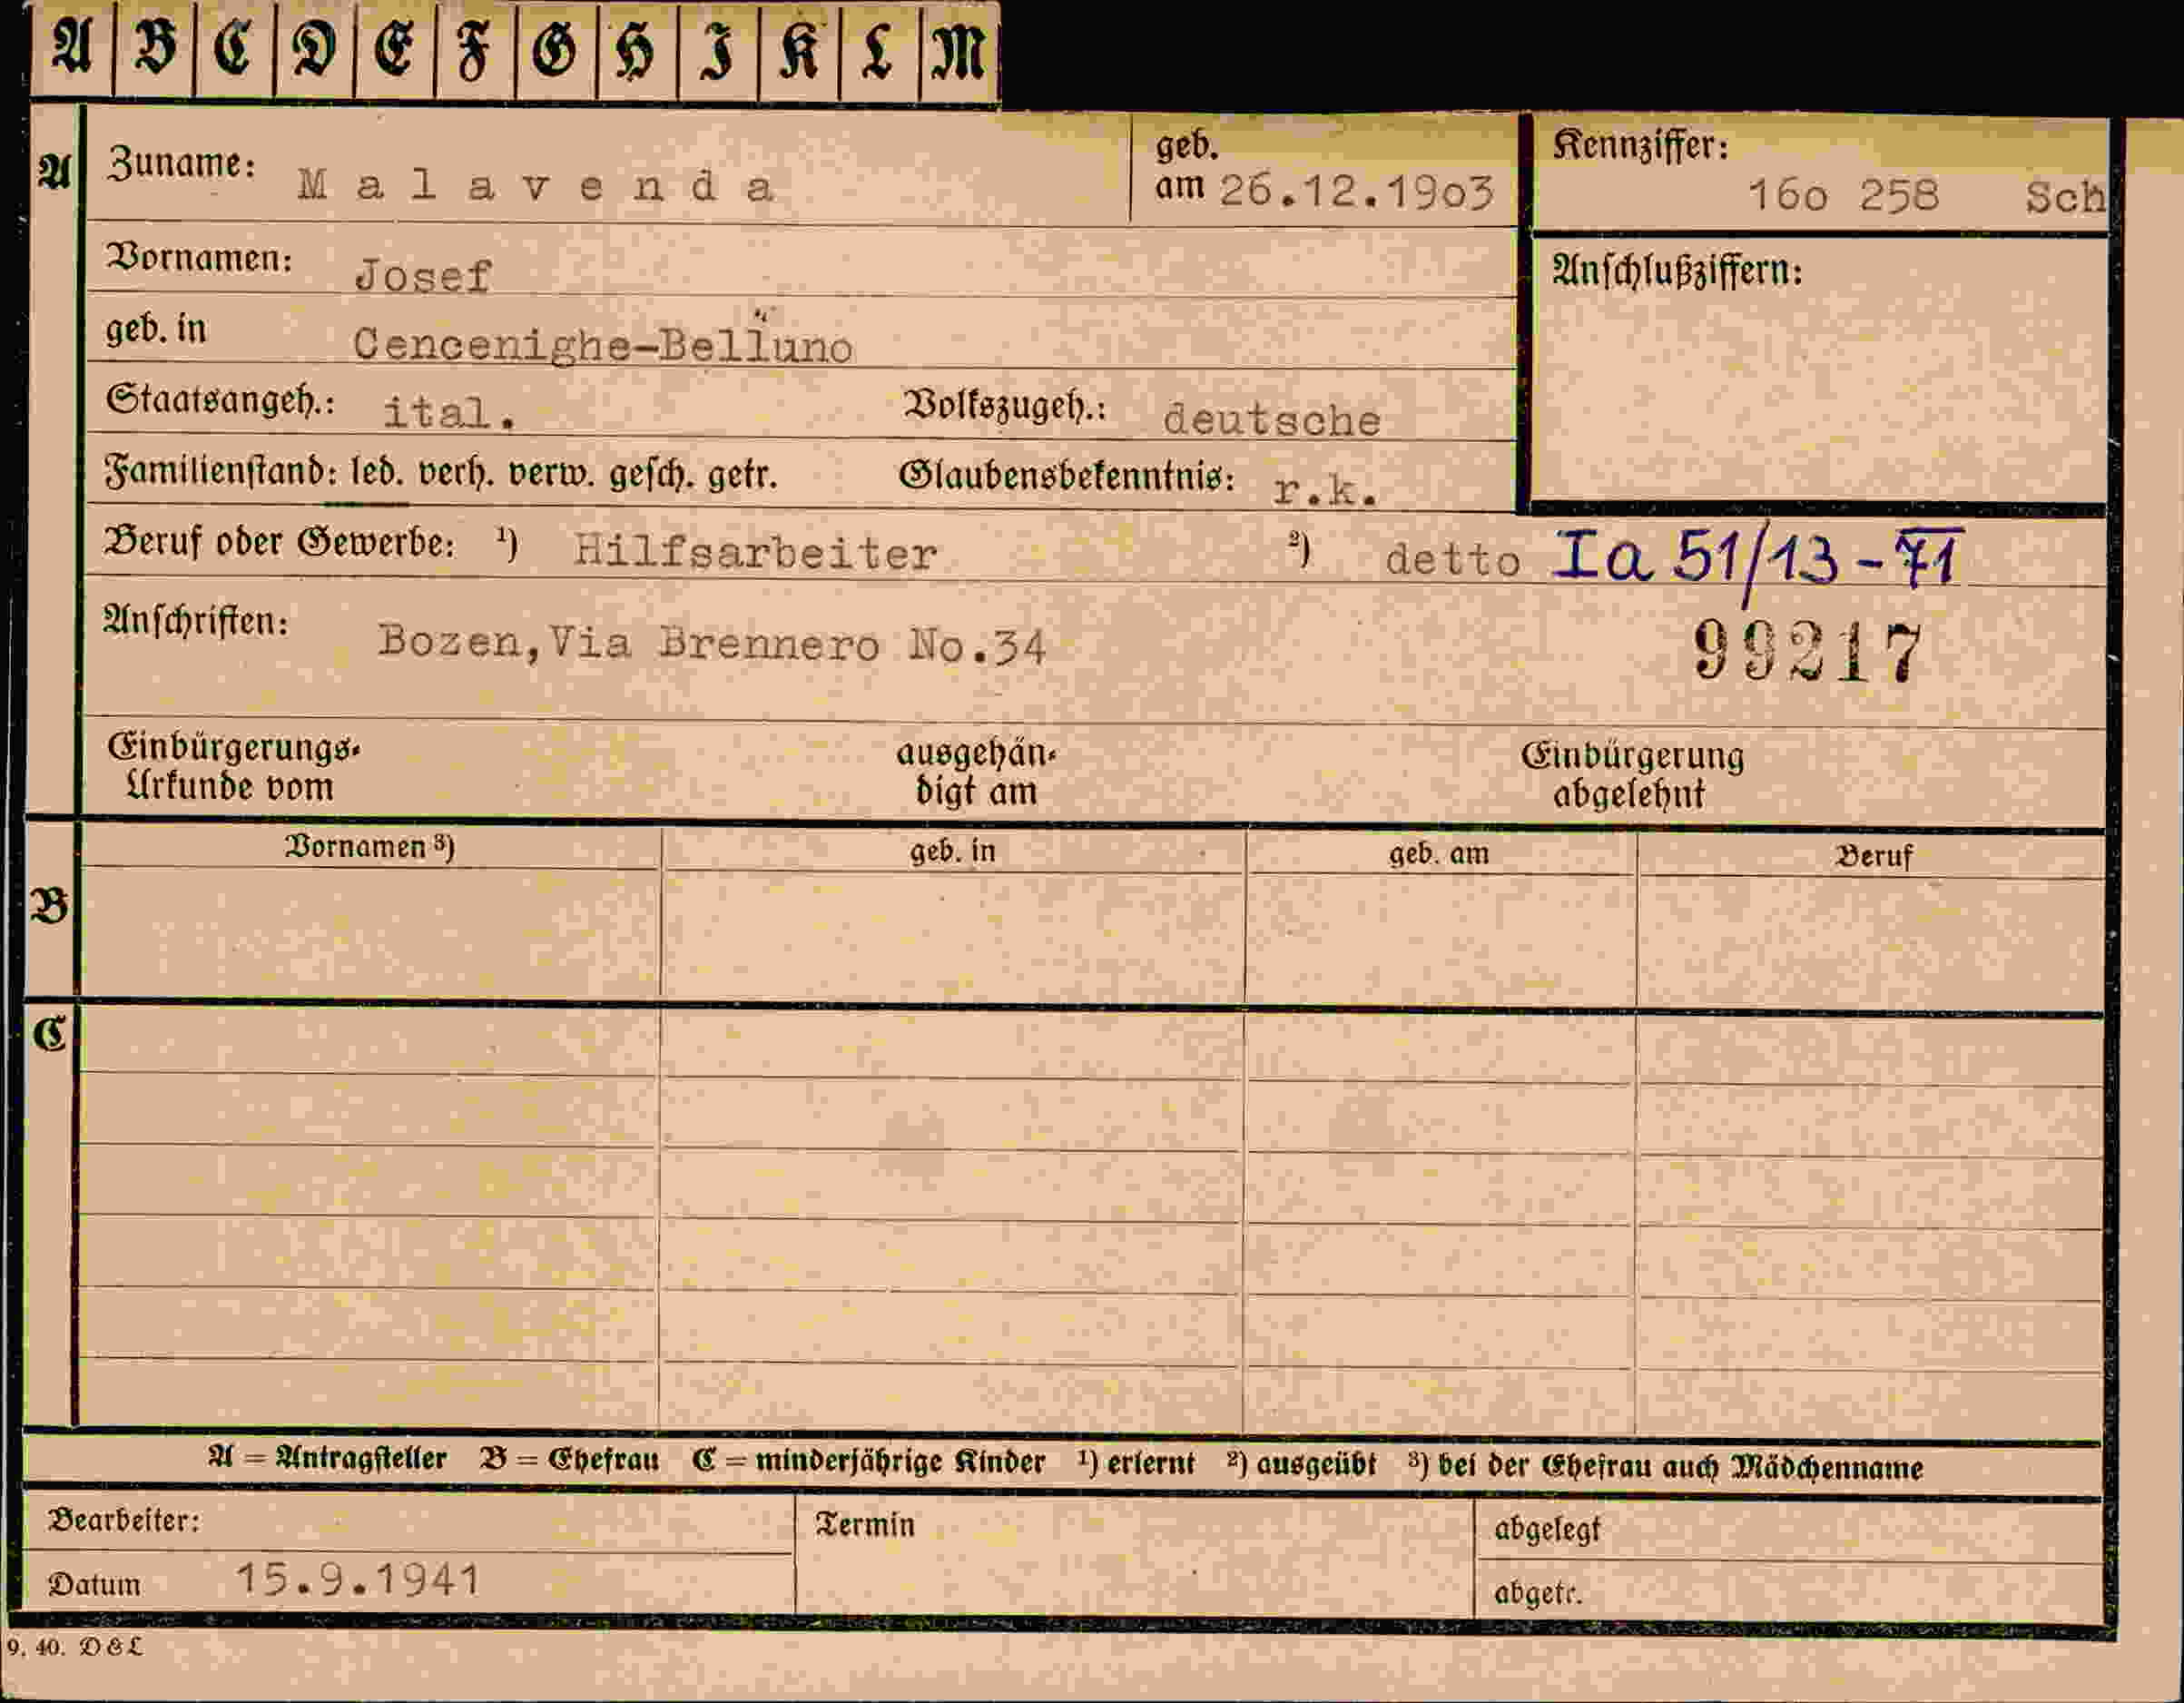 A B C D E F G H I K L M
A Zuname: Malavenda geb. am 26.12.1903 Kennziffer: 16o 258 Sch
Vornamen: Josef Anschlußziffern:
geb. in Cencenighe-Bellüno
Staatsangeh.: ital. Volkszugeh.: deutsche
Familienstand: led. verh. verw. gesch. getr. Glaubensbekenntnis: r.k.
Beruf oder Gewerbe: ¹) Hilfsarbeiter ²) detto Ia 51/13-71
Anschriften: Bozen,Via Brennero No.34 99217
Einbürgerungs- ausgehän- Einbürgerung
Urkunde vom digt am abgelehnt
Vornamen ³) geb. in geb. am Beruf
B
C
A = Antragsteller B = Ehefrau C = minderjährige Kinder ¹) erlernt ²) ausgeübt ³) bei der Ehefrau auch Mädchenname
Bearbeiter: Termin abgelegt
Datum 15.9.1941 abgetr.
9. 40. D&L